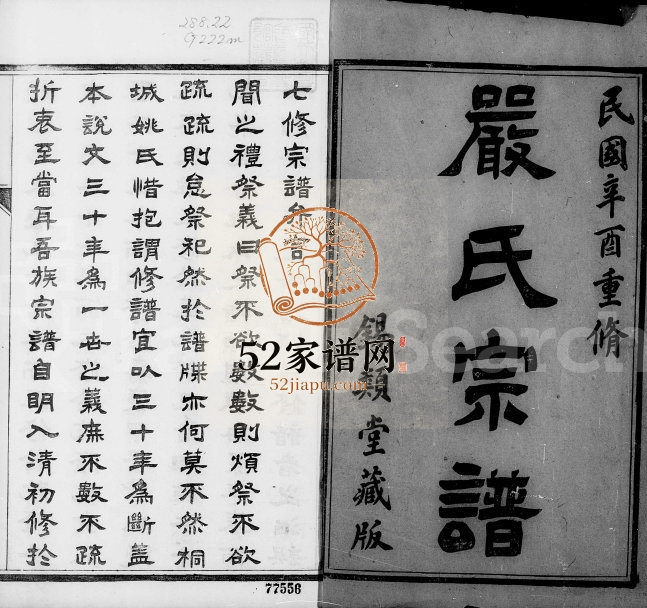 民國辛酉重脩
嚴氏宗譜
錫類堂藏版
七修宗譜弁言
聞之禮祭義曰祭不欲數數則煩祭不欲
疏疏則怠祭祀然於譜牒亦何莫不然桐
城姚氏惜抱謂修譜宜以三十年為斷蓋
本說文三十年為一世之義庶不數不疏
折衷至當耳吾族宗譜自明入清初修於
288.22
G222m
52家谱网
52jiapu.com
77556